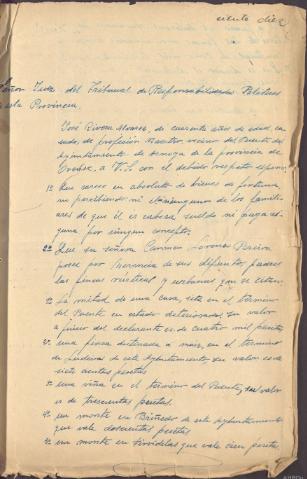 ciento diez
Señor Juez del Tribunal de Responsabilidades Politicas
de esta Provincia.
José Rivera Alvarez, de cuarenta años de edad, ca-
sado, de profesión Maestro vecino del Puente del
Ayuntamiento de de la provincia de
Orense, a V.S. con el debido respeto expone:
1º Que carece en absoluto de bienes de fortuna
no percibiendo ni el ni ninguno de los famili-
ares de que él es cabeza sueldo ni paga al-
guna por ningun concepto.
2º Que su señora Carmen Lorenzo
posee por herencia de sus difuntos padres
las fincas rústicas y urbanas que se citan:
1º La mitad de una casa, sita en el termino
del Puente en estado deteriorado, su valor
a juicio del declarante es de cuatro mil pesetas
2º una finca destinada a maiz, en el termino
de de este Ayuntamiento, su valor es de
siete cientas pesetas
3º una viña en el termino del Puente, su valor
es de trescientas pesetas.
4º un monte en de este Ayuntamiento
que vale doscientas pesetas
5º un monte en que vale cien pesetas